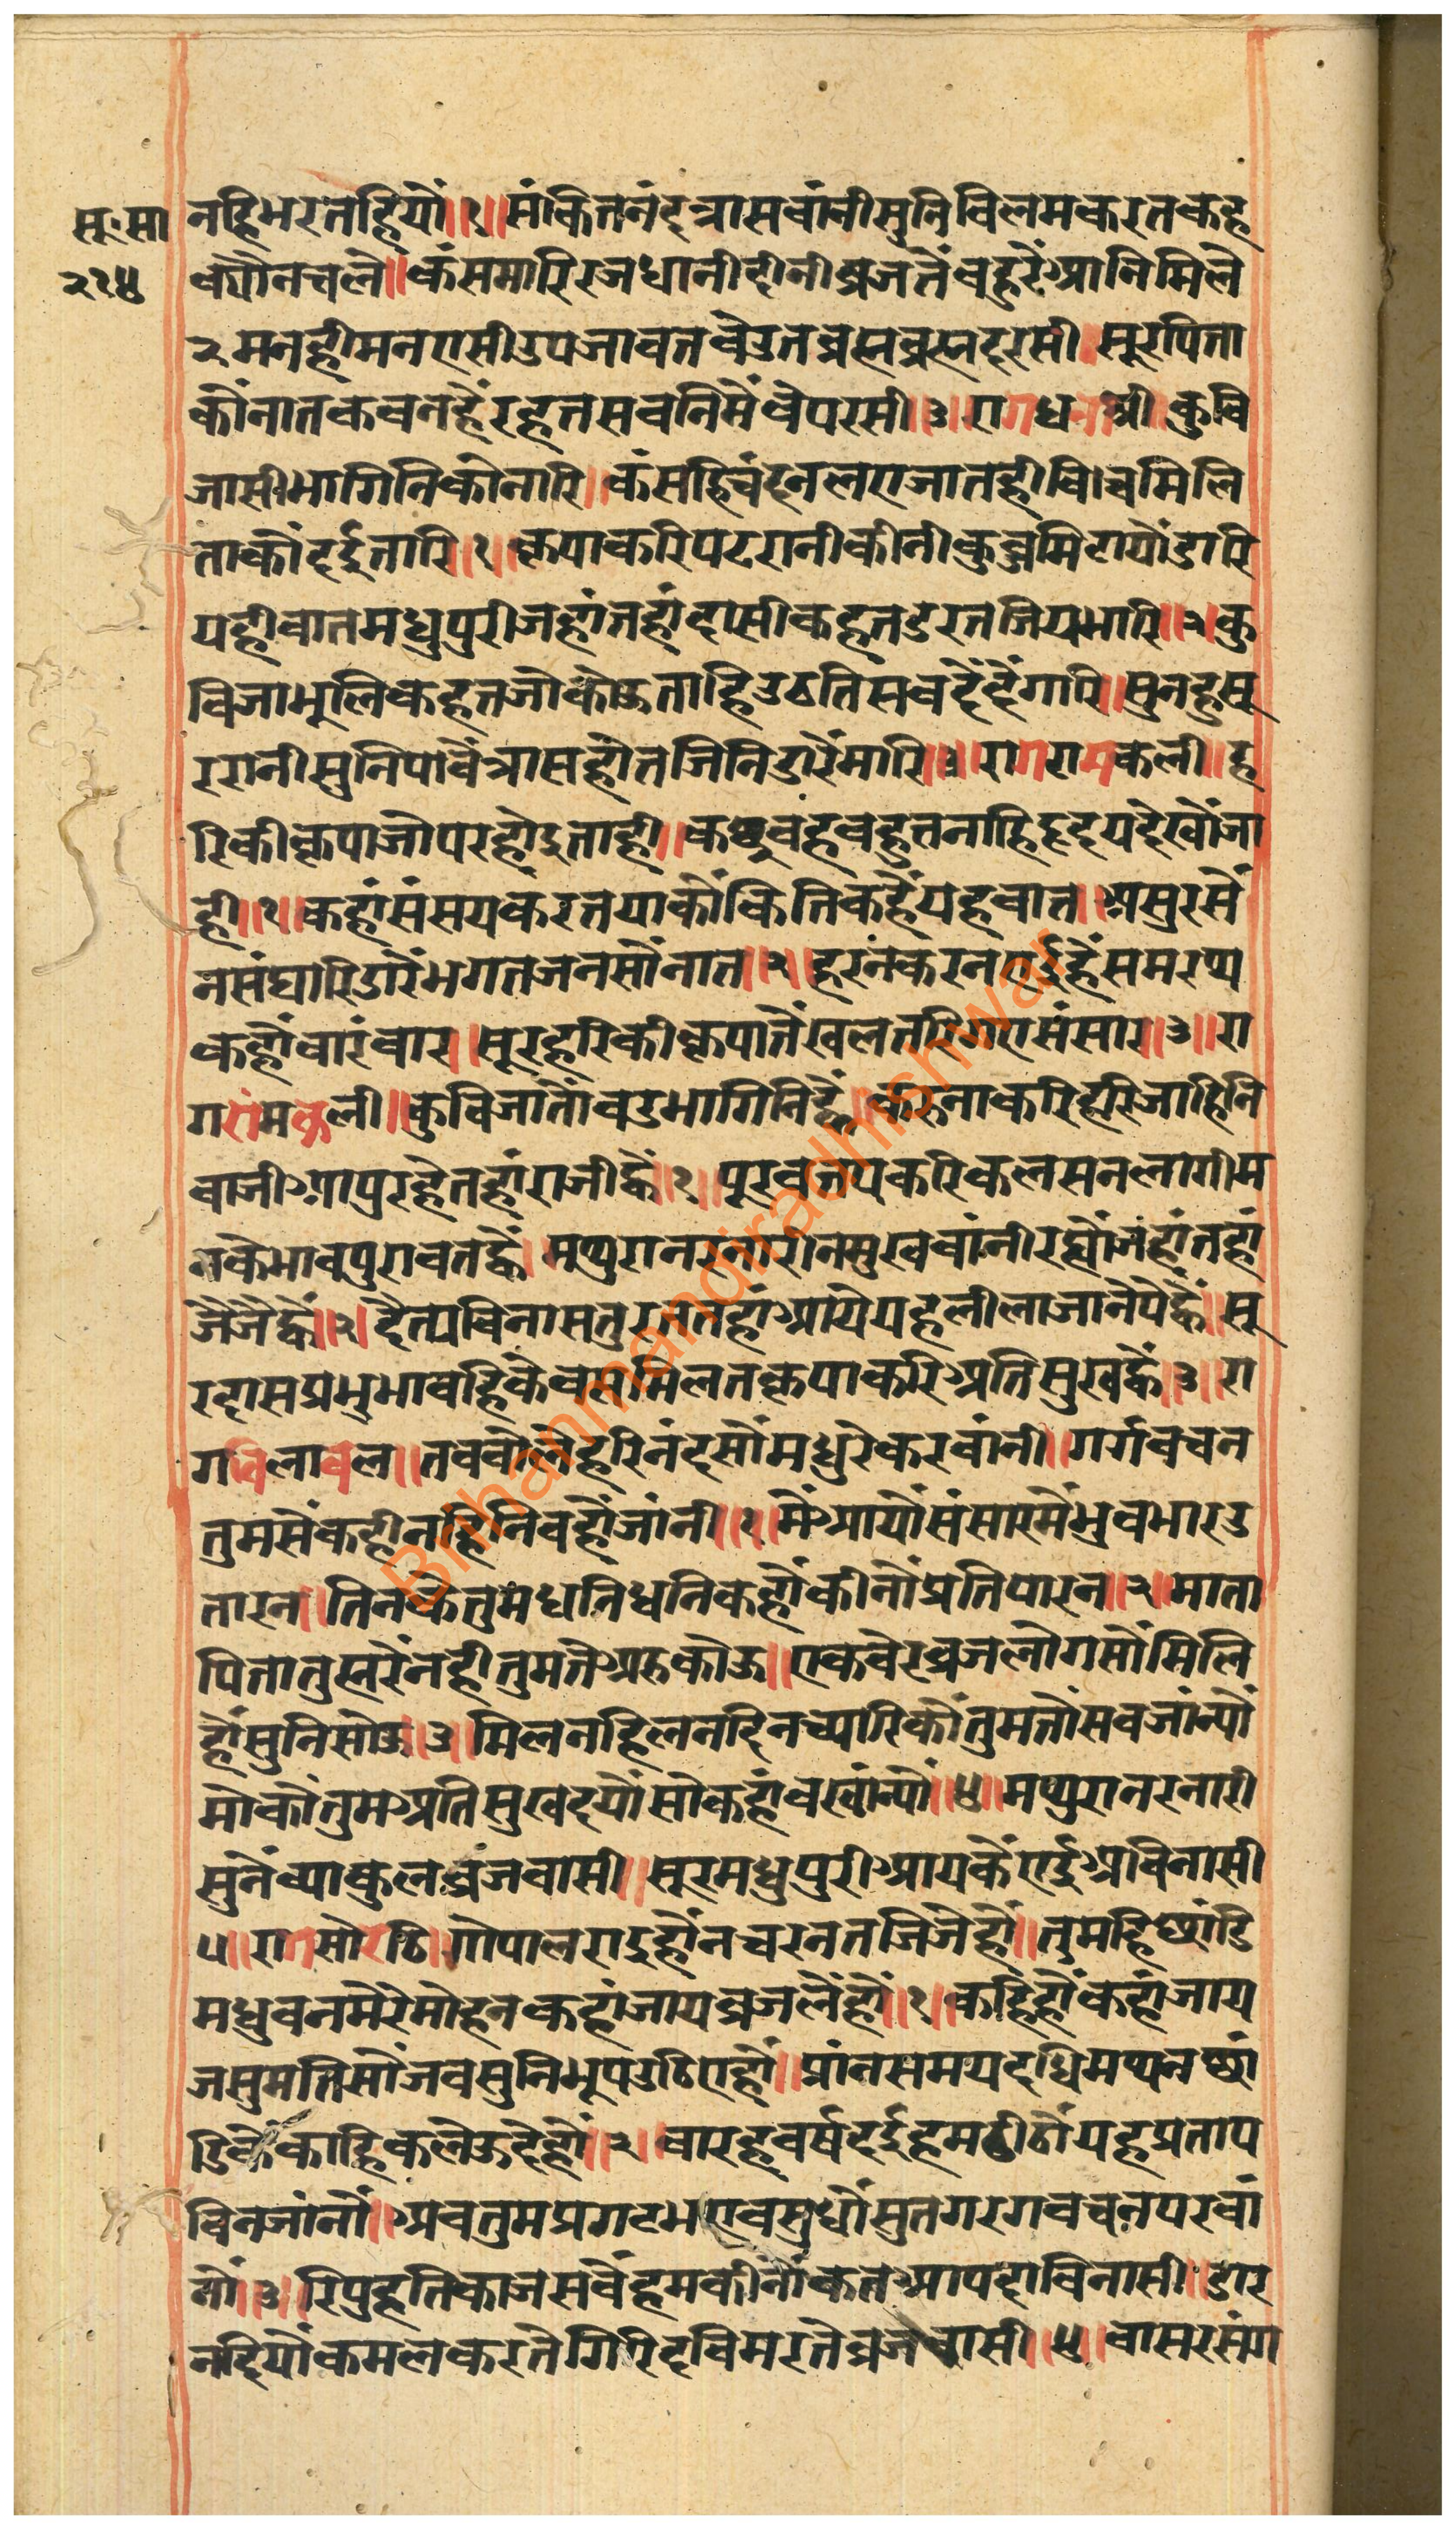 सू.सा
२१४
नहिभरतहियौं॥१॥संकितनंदत्रासवांनीसुनिविलमकरतकह
क्यौनचलै॥कंसमारिरजधानीदीनीव्रजतैंबहुरैंआनिमिलै
२मनहीमनरासीउपजावतवेउतव्रह्मव्रह्मदरसी॥सूरपिता
कौंनातकवनहैंरहतसवनिमैंवेपरसी॥३॥रागधनाश्री॥कुवि
जासीभागिनिकोनारि॥कंसहिचंदनलएजातहीविचमिलि
ताकौंदईतारि॥१॥कृपाकरिपटरानीकीनीकुब्जमिटायौंडारि
यहीवातमधुपुरीजहांतहांदासीकहतडरतजियभारि॥२॥कु
विजाभूलिकहतजोकोऊताहिउठतिसवदैंदैंगारि॥सुनहुसू
ररानीसुनिपावैंत्रासहोतजिनिडारैंमारि॥३॥रागरामकली॥ह
रिकीकृपाजापरहोइताही॥कछुवंहवहुतनाहिहृदयदेखौंजा
ही॥१॥कहांसंसयकरतयाकौंकितिकहैंयहवात॥असुरसैं
नसंघारिडारैंभगतजनसौंनात॥२॥हरनंकरनएईहैंसमरथ्य
कहौंवारंवार॥सूरहरिकीकृपातैंखलतरिगएसंसार॥३॥रा
गरांमकली॥कुविजातौंवडभागिनिह्वै॥करुनाकरिहरिजाहिनि
वाजीआपुरहैतहांराजीह्वैं॥१॥पूरवतपकरिकलसनलागीम
नकेभावपुरावतह्वैं॥मथुरानरनारीनसुखवांनीरह्यौंजंहांतहां
जैंजैंह्वैं॥२॥दैत्यविनासतुरततहांआयेयहलीलाजानैपैंह्वैं॥सू
रदासप्रभुभावहिकेवसमिलतकृपाकरिअतिसुखह्वैं॥३॥रा
गविलावल॥तववोलेहरिनंदसौंमधुरेकरवांनी॥गर्गवचन
तुमसेंकहीनहिनिवहौंजांनी॥१॥मैंआयौंसंसारमैंभुवभारउ
तारन॥तिनकेतुमधनिधनिकहौंकीनौंप्रतिपारन॥२॥माता
पितातुह्मरैंनहीतुमतैअरुकोऊ॥एकवेरव्रजलोगसौंमिलि
हौंसुनिसोऊ॥३॥मिलनहिलनदिनच्यारिकौंतुमतौंसवजांन्यौं
मोकौंतुमअतिसुखदयौंसोकहांवखांन्यौं॥४॥मथुरानरनारी
सुनैंव्याकुलव्रजवासी॥सूरमधुपुरीआयकैंएईअविनासी
५॥रागसोरठि॥गोपालराइहौंनचरनतजिजैहौं॥तुमहिछांडि
मधुवनमेरेमोहनकहांजायव्रजलैंहौं॥१॥कहिहौंकहांजाय
जसुमतिसौंजवसुनिभूपउठिएहौं॥प्रांतसमयदधिमथनछां
डिकैंकाहिकलेऊदेहौं॥२॥वारहवर्षदईहमढीठौंयहप्रताप
विनजांनौं॥अवतुमप्रगटभएवसुधौंसुतगरगवचनपरवां
नौं॥३॥रिपुहतिकाजसवैंहमकीनौंकतआपदाविनासी॥डार
नदियौंकमलकरतेगिरिदविमरतेव्रजवासी॥४॥वासरसंग
Brihanmandiradhishwar